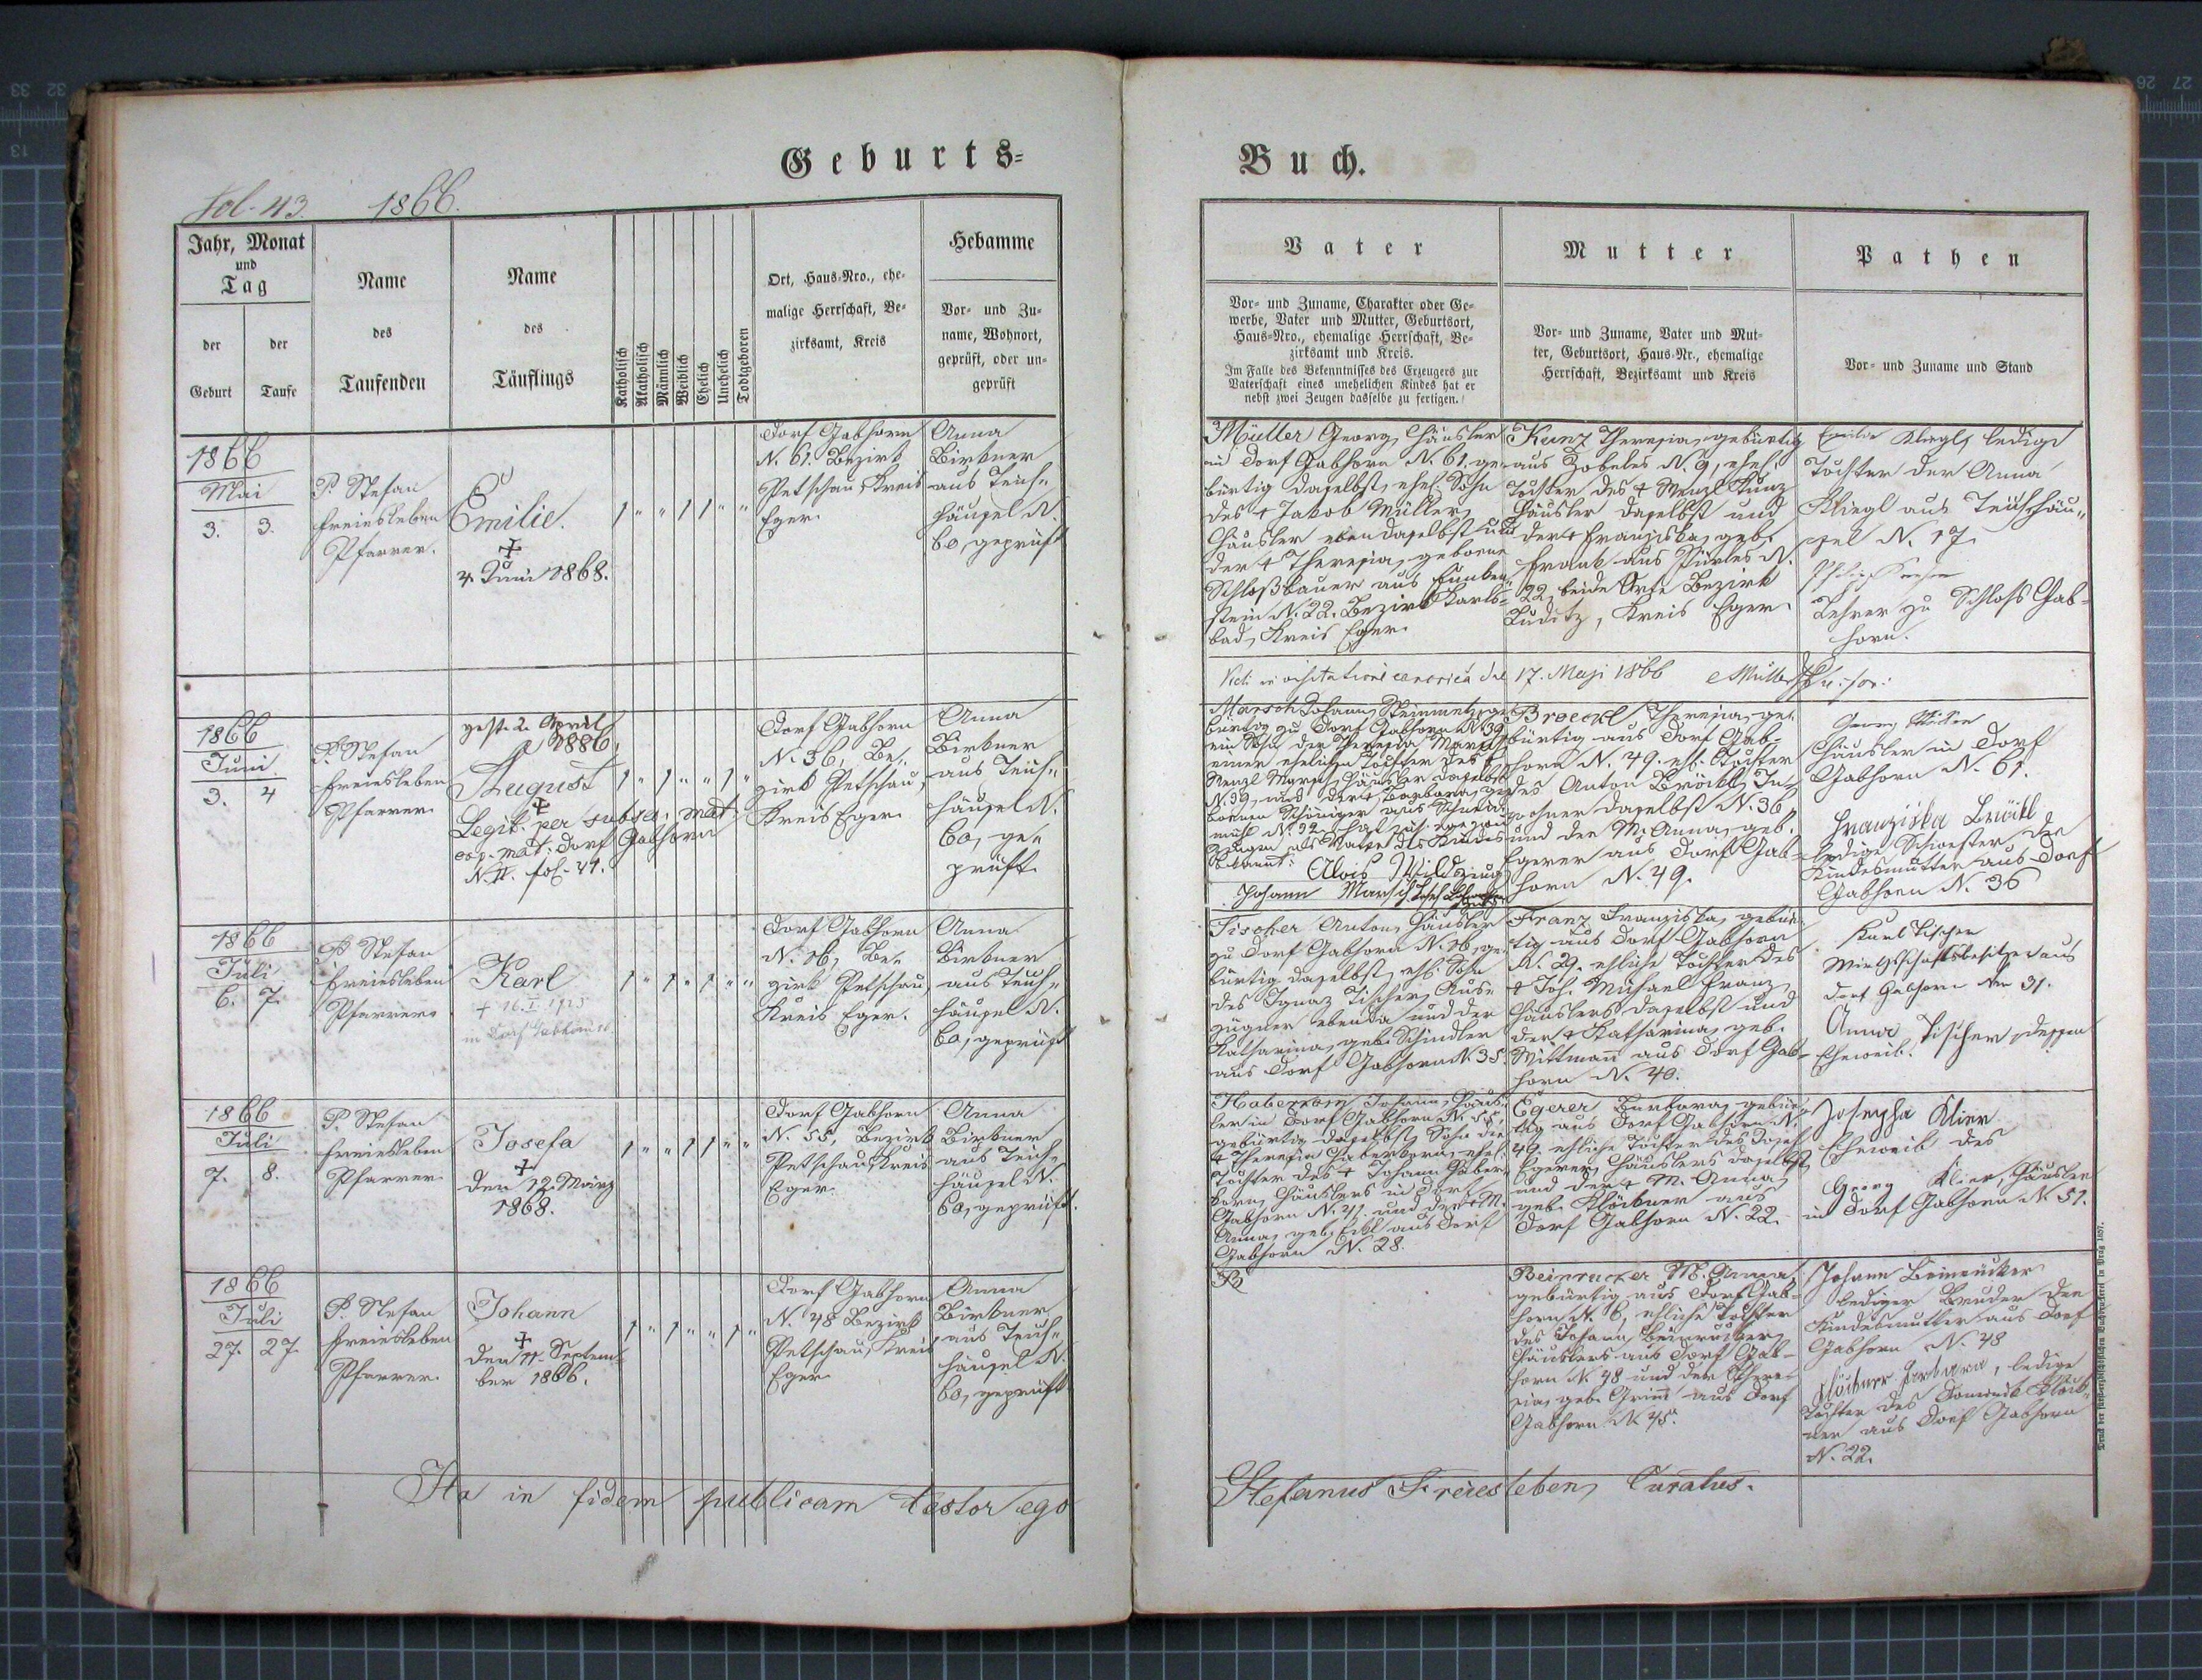 Geburts=
Fol. 43. 1866.
Jahr, Monat
und
Tag
der
Geburt
der
Taufe
Name
des
Taufenden
Name
des
Täuflings
Katholisch
Akatholisch
Männlich
Weiblich
Ehelich
Unehelich
Todtgeboren
Ort, Haus=Nro., ehe=
malige Herrschaft, Be=
zirksamt, Kreis
Hebamme
Vor= und Zu=
name, Wohnort,
geprüft, oder un=
geprüft
1866
Mai
3. 3.
P. Stefan
Freiesleben
Pfarrer.
Emilie.
+
4. Juni 1868.
Dorf Gabhorn
N. 61. Bezirk
Petschau, Kreis
Eger.
Anna
Birkner
aus Teich„
häusel N.
60, geprüft
1866
Juni
3. 4
P. Stefan
Freiesleben
Pfarrer.
gest. 2. April
1886.
August
+
Legit. per subseq. mat.
cop. mat. Dorf Gabhorn
N. II. fol. 41.
Dorf Gabhorn
N. 36, Be„
zirk Petschau,
Kreis Eger.
Anna
Birkner
aus Teich„
häusel N.
60, ge„
prüft.
1866
Juli
6. 7.
P. Stefan
Freiesleben
Pfarrer.
Karl
+ 16. I. 1925
in Dorf Gabhorn 16
Dorf Gabhorn
N. 16, Be„
zirk Petschau,
Kreis Eger.
Anna
Birkner
aus Teich„
häusel N.
60, geprüft
1866
Juli
7. 8.
P. Stefan
Freiesleben
Pfarrer
Josefa
+
den 12. März
1868.
Dorf Gabhorn
N. 55, Bezirk
Petschau, Kreis
Eger.
Anna
Birkner
aus Teich„
häusel N.
60, geprüft.
1866
Juli
27. 27.
P. Stefan
Freiesleben
Pfarrer.
Johann
+
den 11. Septem=
ber 1866.
Dorf Gabhorn
N. 48 Bezirk
Petschau, Kreis
Eger.
Anna
Birkner
aus Teich„
häusel N.
60, geprüft
Ita in fidem publicam testor ego
Buch.
Vater
Vor= und Zuname, Charakter oder Ge=
werbe, Vater und Mutter, Geburtsort,
Haus=Nro., ehemalige Herrschaft, Be=
zirksamt und Kreis.
Im Falle des Bekenntnisses des Erzeugers zur
Vaterschaft eines unehelichen Kindes hat er
nebst zwei Zeugen dasselbe zu fertigen.
Mutter
Vor= und Zuname, Vater und Mut=
ter, Geburtsort, Haus=Nr., ehemalige
Herrschaft, Bezirksamt und Kreis
Pathen
Vor= und Zuname und Stand
Müller Georg, Häusler
in Dorf Gabhorn N. 61. ge„
bürtig daselbst, ehel. Sohn
des + Jakob Müller,
Häusler ebendaselbst und
der + Theresia, geborne
Schloßbauer aus Funken„
stein N. 22. Bezirk Karls=
bad, Kreis Eger.
Kunz Theresia, gebürtig
aus Zoboles N. 9, ehel.
Tochter des + Wenzl Kunz
Häusler daselbst und
der + Franziska, geb.
Frank aus Pürles N.
22, beide Orte Bezirk
Luditz, Kreis Eger.
Emilie Kliegl, ledige
Tochter der Anna
Kliegl aus Teichhäu„
sel N. 17.
Lehrer zu Schloß Gab=
horn.
Vidi in visitatione canonica die 17. Maji 1866 Müller
Marsch Johann, Steinmetz, ge„
bürtig zu Dorf Gabhorn N. 39
ein Sohn der Theresia Marsch
einer ehelichen Tochter des
Wenzl Marsch, Häusler daselbst
N. 39, und der + Barbara, ge„
Zeugen als Vater des Kindes
bekannt:
Alois Wild Zeug
Johann Marsch
Broeckl Theresia, ge„
bürtig aus Dorf Gab=
horn N. 49. eh. Tochter
des Anton Bröckl, In„
wohner daselbst N. 36
und der M. Anna, geb.
Egerer aus Dorf Gab=
horn N. 49.
Georg Müller
Häusler in Dorf
Gabhorn N. 61.
Franziska Bröckl
ledige Schwester der
Kindesmutter aus Dorf
Gabhorn N. 36
Tischer Anton, Häusler
zu Dorf Gabhorn N. 16, ge„
bürtig daselbst, ehl. Sohn
des Ignaz Tischer, Aus„
zügner ebenda und der
Katharina, geb. Schindler
aus Dorf Gabhorn N. 35.
Franz Franziska, gebür„
tig aus Dorf Gabhorn
N. 29. ehliche Tochter des
+ Joh. Michael Franz,
Häuslers daselbst und
der + Katharina, geb.
Wittmann aus Dorf Gab=
horn N. 40.
Karl Tischer
Wirthschaftsbesitzer aus
Dorf Gabhorn Nro 31.
Anna Tischer, dessen
Eheweib.
Haberkorn Johann, Häus„
ler in Dorf Gabhorn N. 55,
gebürtig daselbst, Sohn der
+ Theresia Haberkorn, ehel.
Tochter des + Johann Haber„
korn, Häuslers in Dorf
Gabhorn N. 41. und der + M.
Anna, geb. aus Dorf
Gabhorn N. 28.
Egerer Barbara, gebür„
tig aus Dorf Gabhorn N.
49. ehliche Tochter des Josef
Egerer, Häuslers daselbst
und der + M. Anna,
geb. Klöckner aus
Dorf Gabhorn N. 22.
Josepha Klier
Eheweib des
Georg Klier, Häusler
in Dorf Gabhorn N. 51.
Beinrucker M. Anna,
gebürtig aus Dorf Gab=
horn N. 6, ehliche Tochter
des Johann Beinrucker,
Häuslers aus Dorf Gab=
horn N. 48 und der There=
sia, geb. Grimm aus Dorf
Gabhorn N. 45.
Johann Beinrucker
lediger Bruder der
Kindesmutter aus Dorf
Gabhorn N. 48
Klöckner Barbara, ledige
Tochter des Dominik Klöck=
ner aus Dorf Gabhorn
N. 22.
Stefanus Freiesleben, Curatus.
Druck der fürsterzbischöflichen Buchdruckerei in Prag 1857.